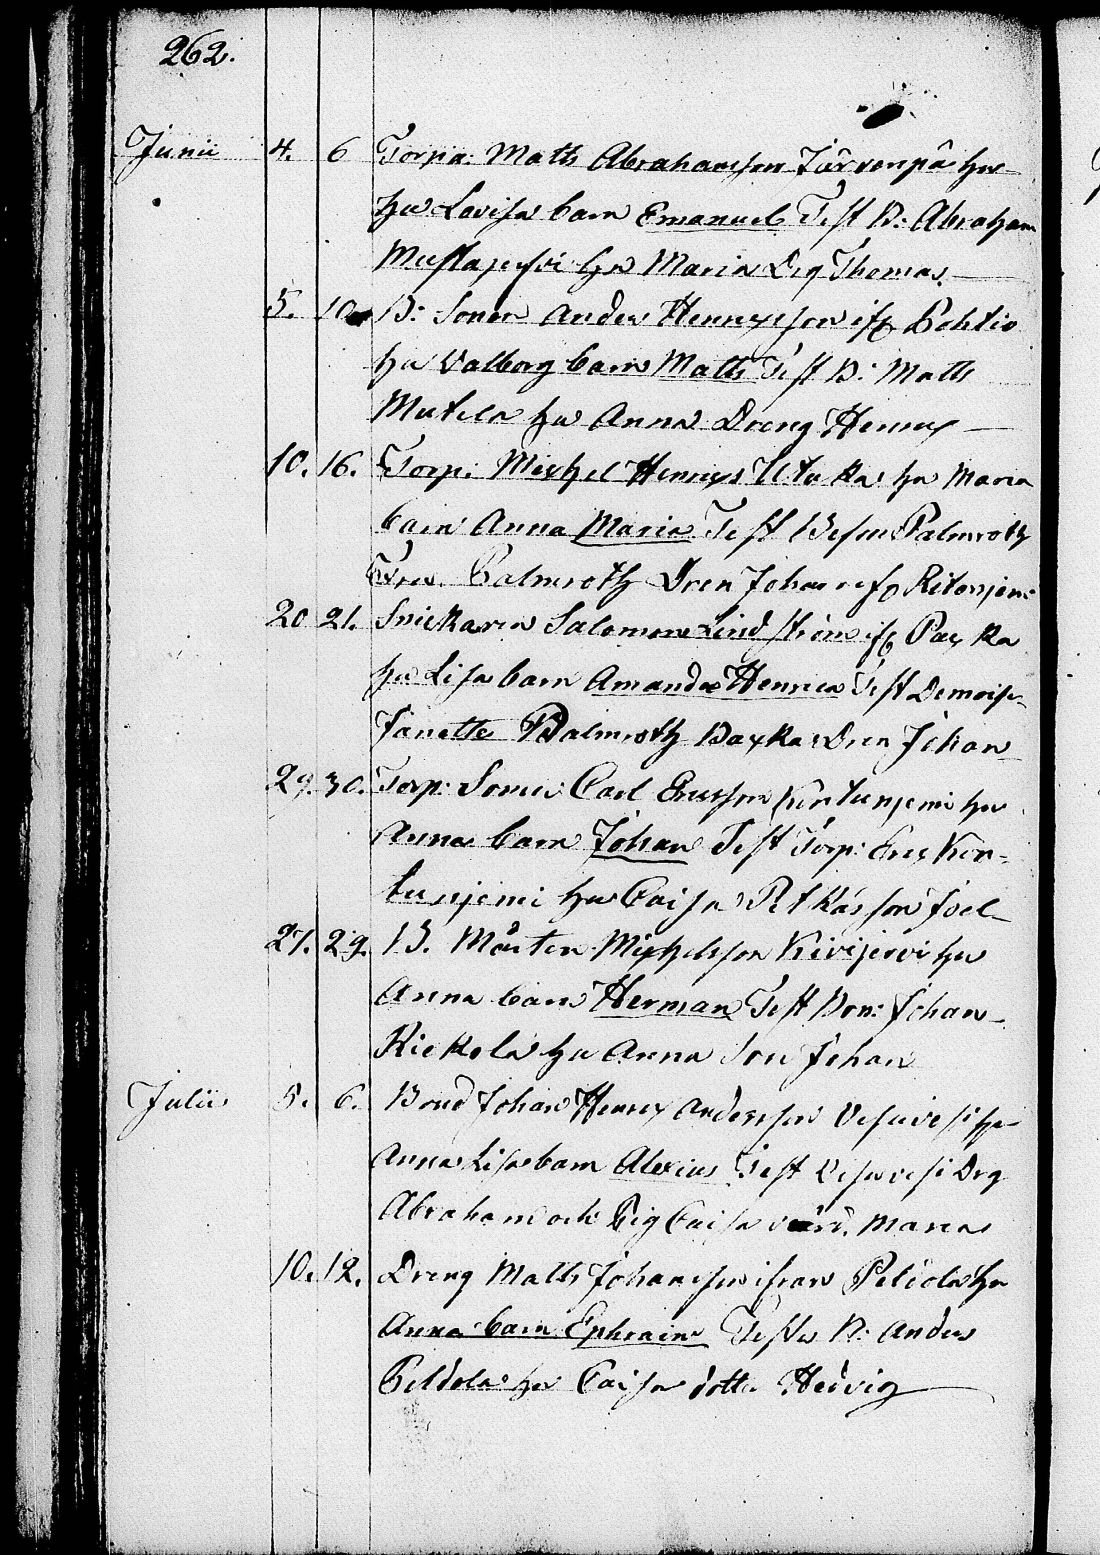 262.
Junii 4. 6 Torpa: Matts Abrahamsson Järvenpä hu
hu Lovisa barn Emanuel Test B: Abraham
Mustajerfvi hu Maria Drg Thomas.
5. 10 B: Sonen Anders Henricsson ifr Pohtio
hu Valborg barn Matts Test B: Matts
Mutila hu Anna Dreng Henric
10. 16. Torp: Michel Henrics hu Maria
barn Anna Maria Test Palmroth
Palmroth Dren Johan ifr Ritonjemi
20 21. Snickaren Salomon Lindström ifr Packa
hu Lisa barn Amanda Henrica Test Demois
Janette Palmroth Dren Johan
29. 30. Torp: Sonen Carl Ericsson Kortunjemi hu
Anna barn Johan Test Torp: Eric Kor-
tunjemi hu Caisa Joel
27. 29. B. Mårten Michelsson Kivijervi hu
Anna barn Herman Test Bon: Johan
Kickola hu Anna Son Johan
Julii 5. 6. Bond Johan Henric Andersson Vesivesi hu
Anna Lisa barn Alexius Test Vesivesi Drg
Abraham och Pig Caisa värd. Maria
10. 12. Dreng Matts Johansson ifrån Peldola hu
Anna barn Ephraim Testes B: Anders
Peldola hu Caisa dotter Hedvig